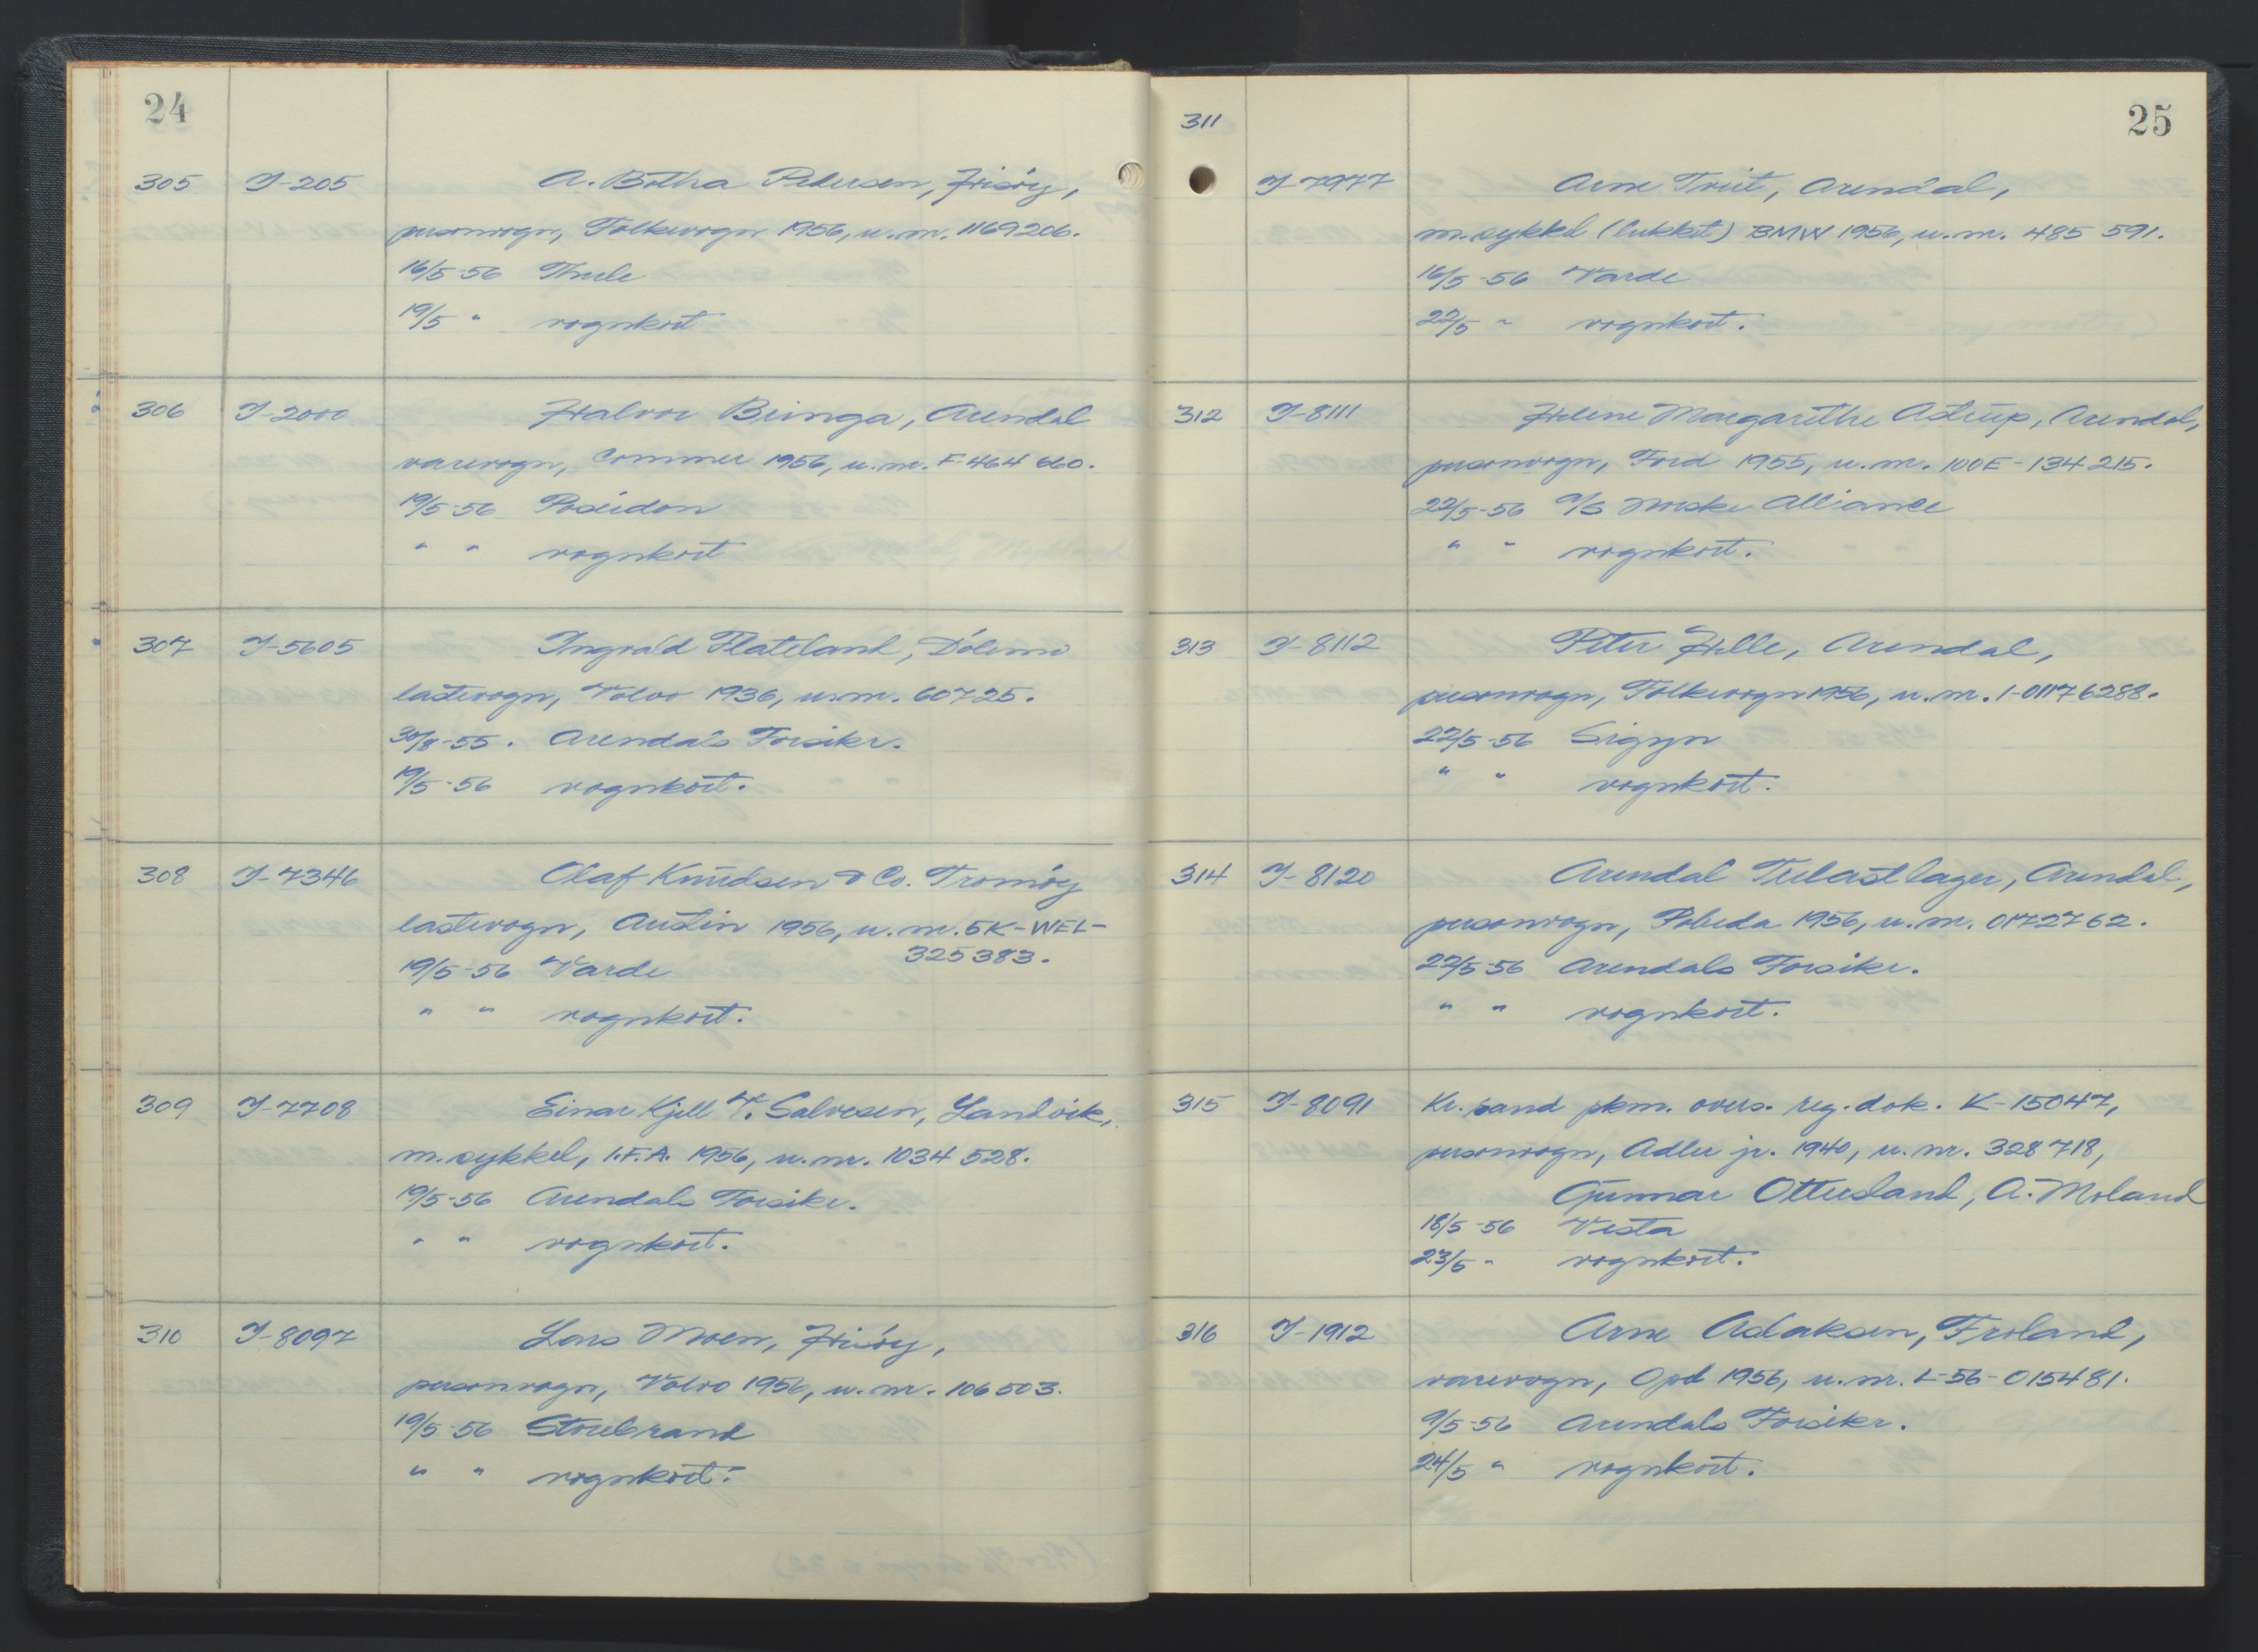 24
305 I-205 A. Botha Pedersen, Hisøy,
personvogn, Folkevogn 1956, u.nr. 1169206.
16/5-56 Thule
19/5 " vognkort
306 I-2000 Halvor Bringa, Arendal
varevogn, Commer 1956, u.nr. F-464 660.
19/5-56 Poseidon
" " vognkort
307 I-5605 Ingvald Flateland, Dølemo
lastevogn, Volvo 1936, u.nr. 60725.
30/8-55. Arendals Forsikr.
19/5-56 vognkort.
308 I-7346 Olaf Knudsen & Co. Tromøy
lastevogn, Austin 1956, u.nr. 5K-WEL-
325383.
19/5-56 Varde
" " vognkort.
309 I-7708 Einar Kjell T. Salvesen, Landvik,
m.sykkel, I.F.A. 1956, u.nr. 1034 528.
19/5-56 Arendals Forsikr.
" " vognkort.
310 I-8097 Lars Moen, Hisøy,
personvogn, Volvo 1956, u.nr. 106503.
19/5-56 Storebrand
" " vognkort.
25
311
I-7977 Arne Tveit, Arendal,
m.sykkel (lukket) BMW 1956, u.nr. 485 591.
16/5-56 Varde
22/5 " vognkort.
312 I-8111 Helene Margarethe Astrup, Arendal,
personvogn, Ford 1955, u.nr. 100E-134 215.
22/5-56 A/S Norske Alliance
" " vognkort.
313 I-8112 Peter Helle, Arendal,
personvogn, Folkevogn 1956, u.nr. 1-01176288.
22/5-56 Sigyn
" " vognkort.
314 I-8120 Arendal Trelastlager, Arendal,
personvogn, Pobeda 1956, u.nr. 0172762.
22/5-56 Arendals Forsikr.
" " vognkort.
315 I-8091 Kr.sand pkm. overs. reg.dok. K-15047,
personvogn, Adler jr. 1940, u.nr. 328718,
Gunnar Ottersland, A. Moland
18/5-56 Vesta
23/5 " vognkort.
316 I-1912 Arne Aslaksen, Froland,
varevogn, Opel 1956, u.nr. L-56-015481.
9/5-56 Arendals Forsikr.
24/5 " vognkort.